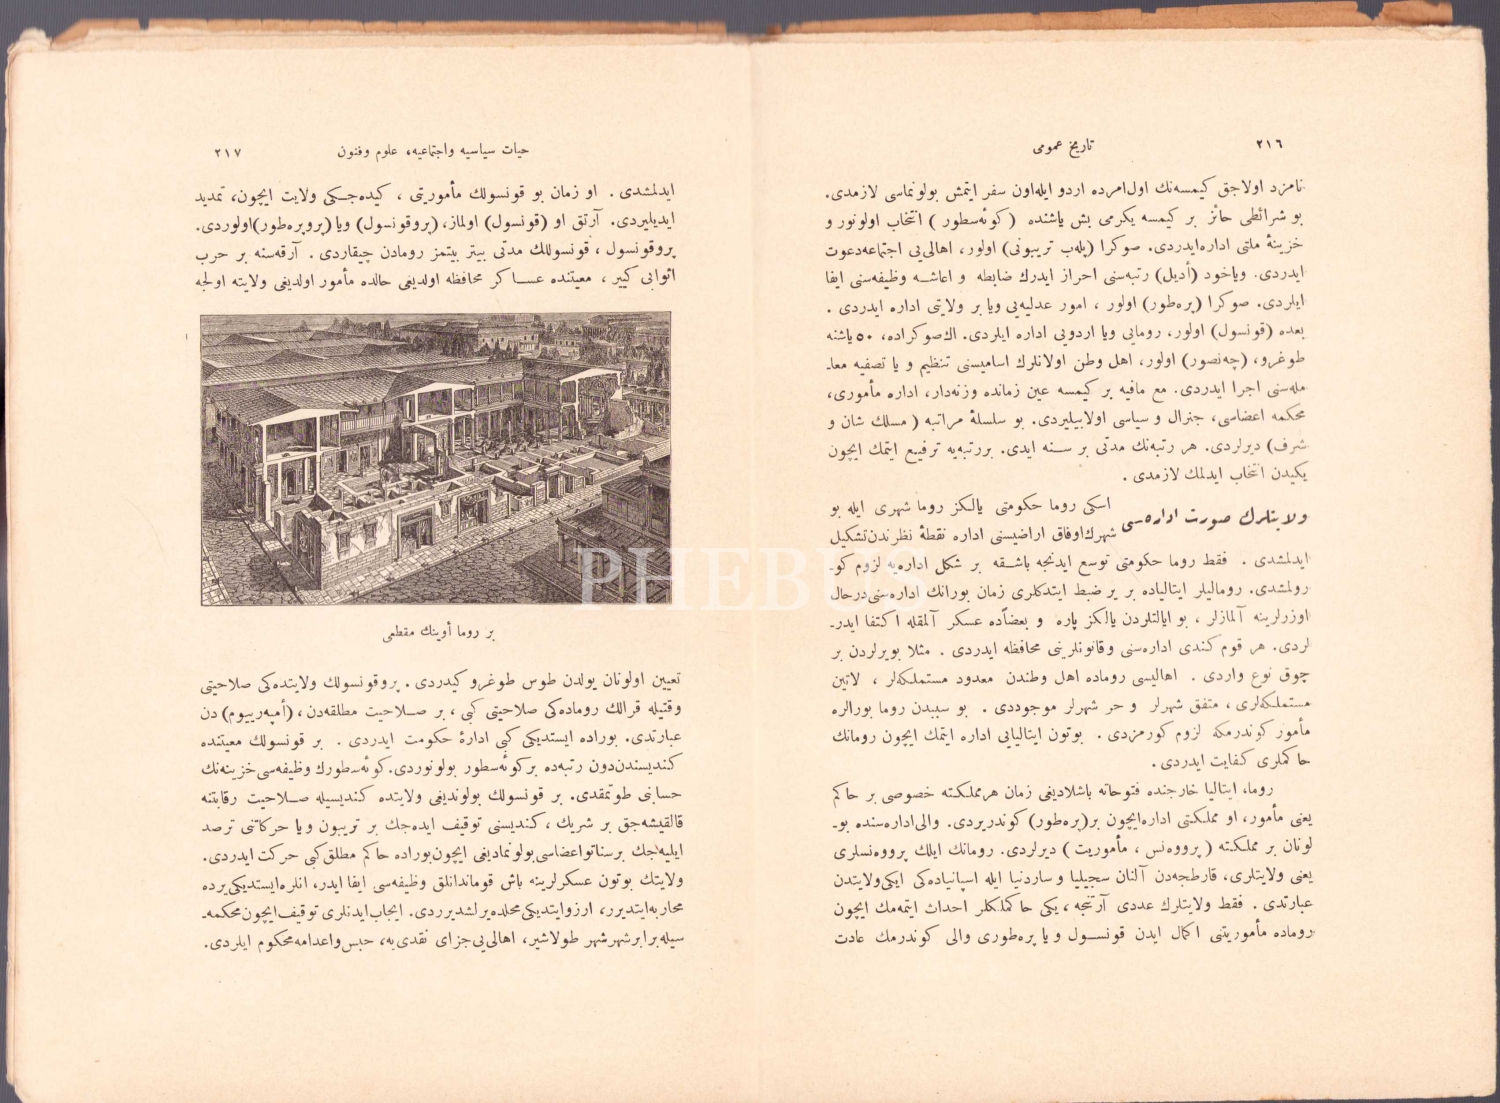 ٢١٦
تاريخ عمومى
نامزد اولاجق كيمسه‌نك اول امرده اردو ايله اون سفر ايتمش بولونماسى لازمدى.
بو شرائطى حائز بر كيمسه يكرمى بش ياشنده (كوئه‌سطور) انتخاب اولونور و
خزينۀ ملتى اداره ايدردى. صوكرا (پله‌ب تريبونى) اولور، اهالى‌يى اجتماعه دعوت
ايدردى. وياخود (أديل) رتبه‌سنى احراز ايدرك ضابطه و اعاشه وظيفه‌سنى ايفا
ايلردى. صوكرا (پره‌طور) اولور، امور عدليه‌يى ويا بر ولايتى اداره ايدردى.
بعده (قونسول) اولور، رومايى ويا اردويى اداره ايلردى. اك صوكراده، ٥٠ ياشنه
طوغرو، (چه‌نصور) اولور، اهل وطن اولانلرك اساميسنى تنظيم و يا تصفيه معا-
مله‌سنى اجرا ايدردى. مع مافيه بر كيمسه عين زمانده وزنه‌دار، اداره مأمورى،
محكمه اعضاسى، جنرال و سياسى اولابيليردى. بو سلسلۀ مراتبه (مسلك شان و
شرف) ديرلردى. هر رتبه‌نك مدتى بر سنه ايدى. بررتبه‌يه ترفيع ايتمك ايچون
يكيدن انتخاب ايدلمك لازمدى.
ولايتلرك صورت اداره‌سى
اسكى روما حكومتى يالكز روما شهرى ايله بو
شهرك اوفاق اراضيسنى اداره نقطۀ نظرندن تشكيل
ايدلمشدى. فقط روما حكومتى توسع ايدنجه باشقه بر شكل اداره‌يه لزوم كو-
رولمشدى. رومالیلر ايتالياده بر ير ضبط ايتدكلرى زمان بورانك اداره‌سنى درحال
اوزرلرينه آلمازلر، بو ايالتلردن يالكز پاره و بعضاًده عسكر آلمقله اكتفا ايدر-
لردى. هر قوم كندى اداره‌سنى وقانونلرينى محافظه ايدردى. مثلا بويرلردن بر
چوق نوع واردى. اهاليسى روماده اهل وطندن معدود مستملكه‌لر، لاتين
مستملكه‌لرى، متفق شهرلر و حر شهرلر موجوددى. بو سببدن روما بورالره
مأمور كوندرمكه لزوم كورمزدى. بوتون ايتاليايى اداره ايتمك ايچون رومانك
حاكملرى كفايت ايدردى.
روما، ايتاليا خارجنده فتوحاته باشلاديغى زمان هر مملكته خصوصى بر حاكم
يعنى مأمور، او مملكتى اداره ايچون بر (پره‌طور) كوندريردى. والى اداره‌سنده بو-
لونان بر مملكته (پرووه‌نس، مأموريت) ديرلردى. رومانك ايلك پرووه‌نسلرى
يعنى ولايتلرى، قارطجه‌دن آلنان سجيليا و ساردنيا ايله اسپانياده‌كى ايكى ولايتدن
عبارتدى. فقط ولايتلرك عددى آرتنجه، يكى حاكملكلر احداث ايتمه‌مك ايچون
روماده مأموريتنى اكمال ايدن قونسول و يا پره‌طورى والى كوندرمك عادت
حيات سياسيه واجتماعيه، علوم وفنون
٢١٧
ايدلمشدى. او زمان بو قونسولك مأموريتى، كيده‌جكى ولايت ايچون، تمديد
ايديليردى. آرتق او (قونسول) اولماز، (پروقونسول) ويا (پروپره‌طور) اولوردى.
پروقونسول، قونسوللك مدتى بيتر بيتمز رومادن چيقاردى. آرقه‌سنه بر حرب
اثوابى كيير، معيتنده عساكر محافظه اولديغى حالده مأمور اولديغى ولايته اولجه
بر روما أوينك مقطعى
تعيين اولونان يولدن طوس طوغرو كيدردى. پروقونسولك ولايتده‌كى صلاحيتى
وقتيله قرالك روماده‌كى صلاحيتى كبى، بر صلاحيت مطلقه‌دن، (أمپه‌رييوم) دن
عبارتدى. بوراده ايستديكى كبى ادارۀ حكومت ايدردى. بر قونسولك معيتنده
كنديسندن دون رتبه‌ده بر كوئه‌سطور بولونوردى. كوئه‌سطورك وظيفه‌سى خزينه‌نك
حسابنى طوتمقدى. بر قونسولك بولونديغى ولايتده كنديسيله صلاحيت رقابتنه
قالقيشه‌جق بر شريك، كنديسنى توقيف ايده‌جك بر تريبون ويا حركاتنى ترصد
ايليه‌جك بر سناتو اعضاسى بولونماديغى ايچون بوراده حاكم مطلق كبى حركت ايدردى.
ولايتك بوتون عسكرلرينه باش قوماندانلق وظيفه‌سى ايفا ايدر، انلره ايستديكى يرده
محاربه ايتديرر، ارزو ايتديكى محلده يرلشديرردى. ايجاب ايدنلرى توقيف ايچون محكمه-
سيله برابر شهر شهر طولاشير، اهالى‌يى جزاى نقدى‌يه، حبس واعدامه محكوم ايلردى.
PHEBUS